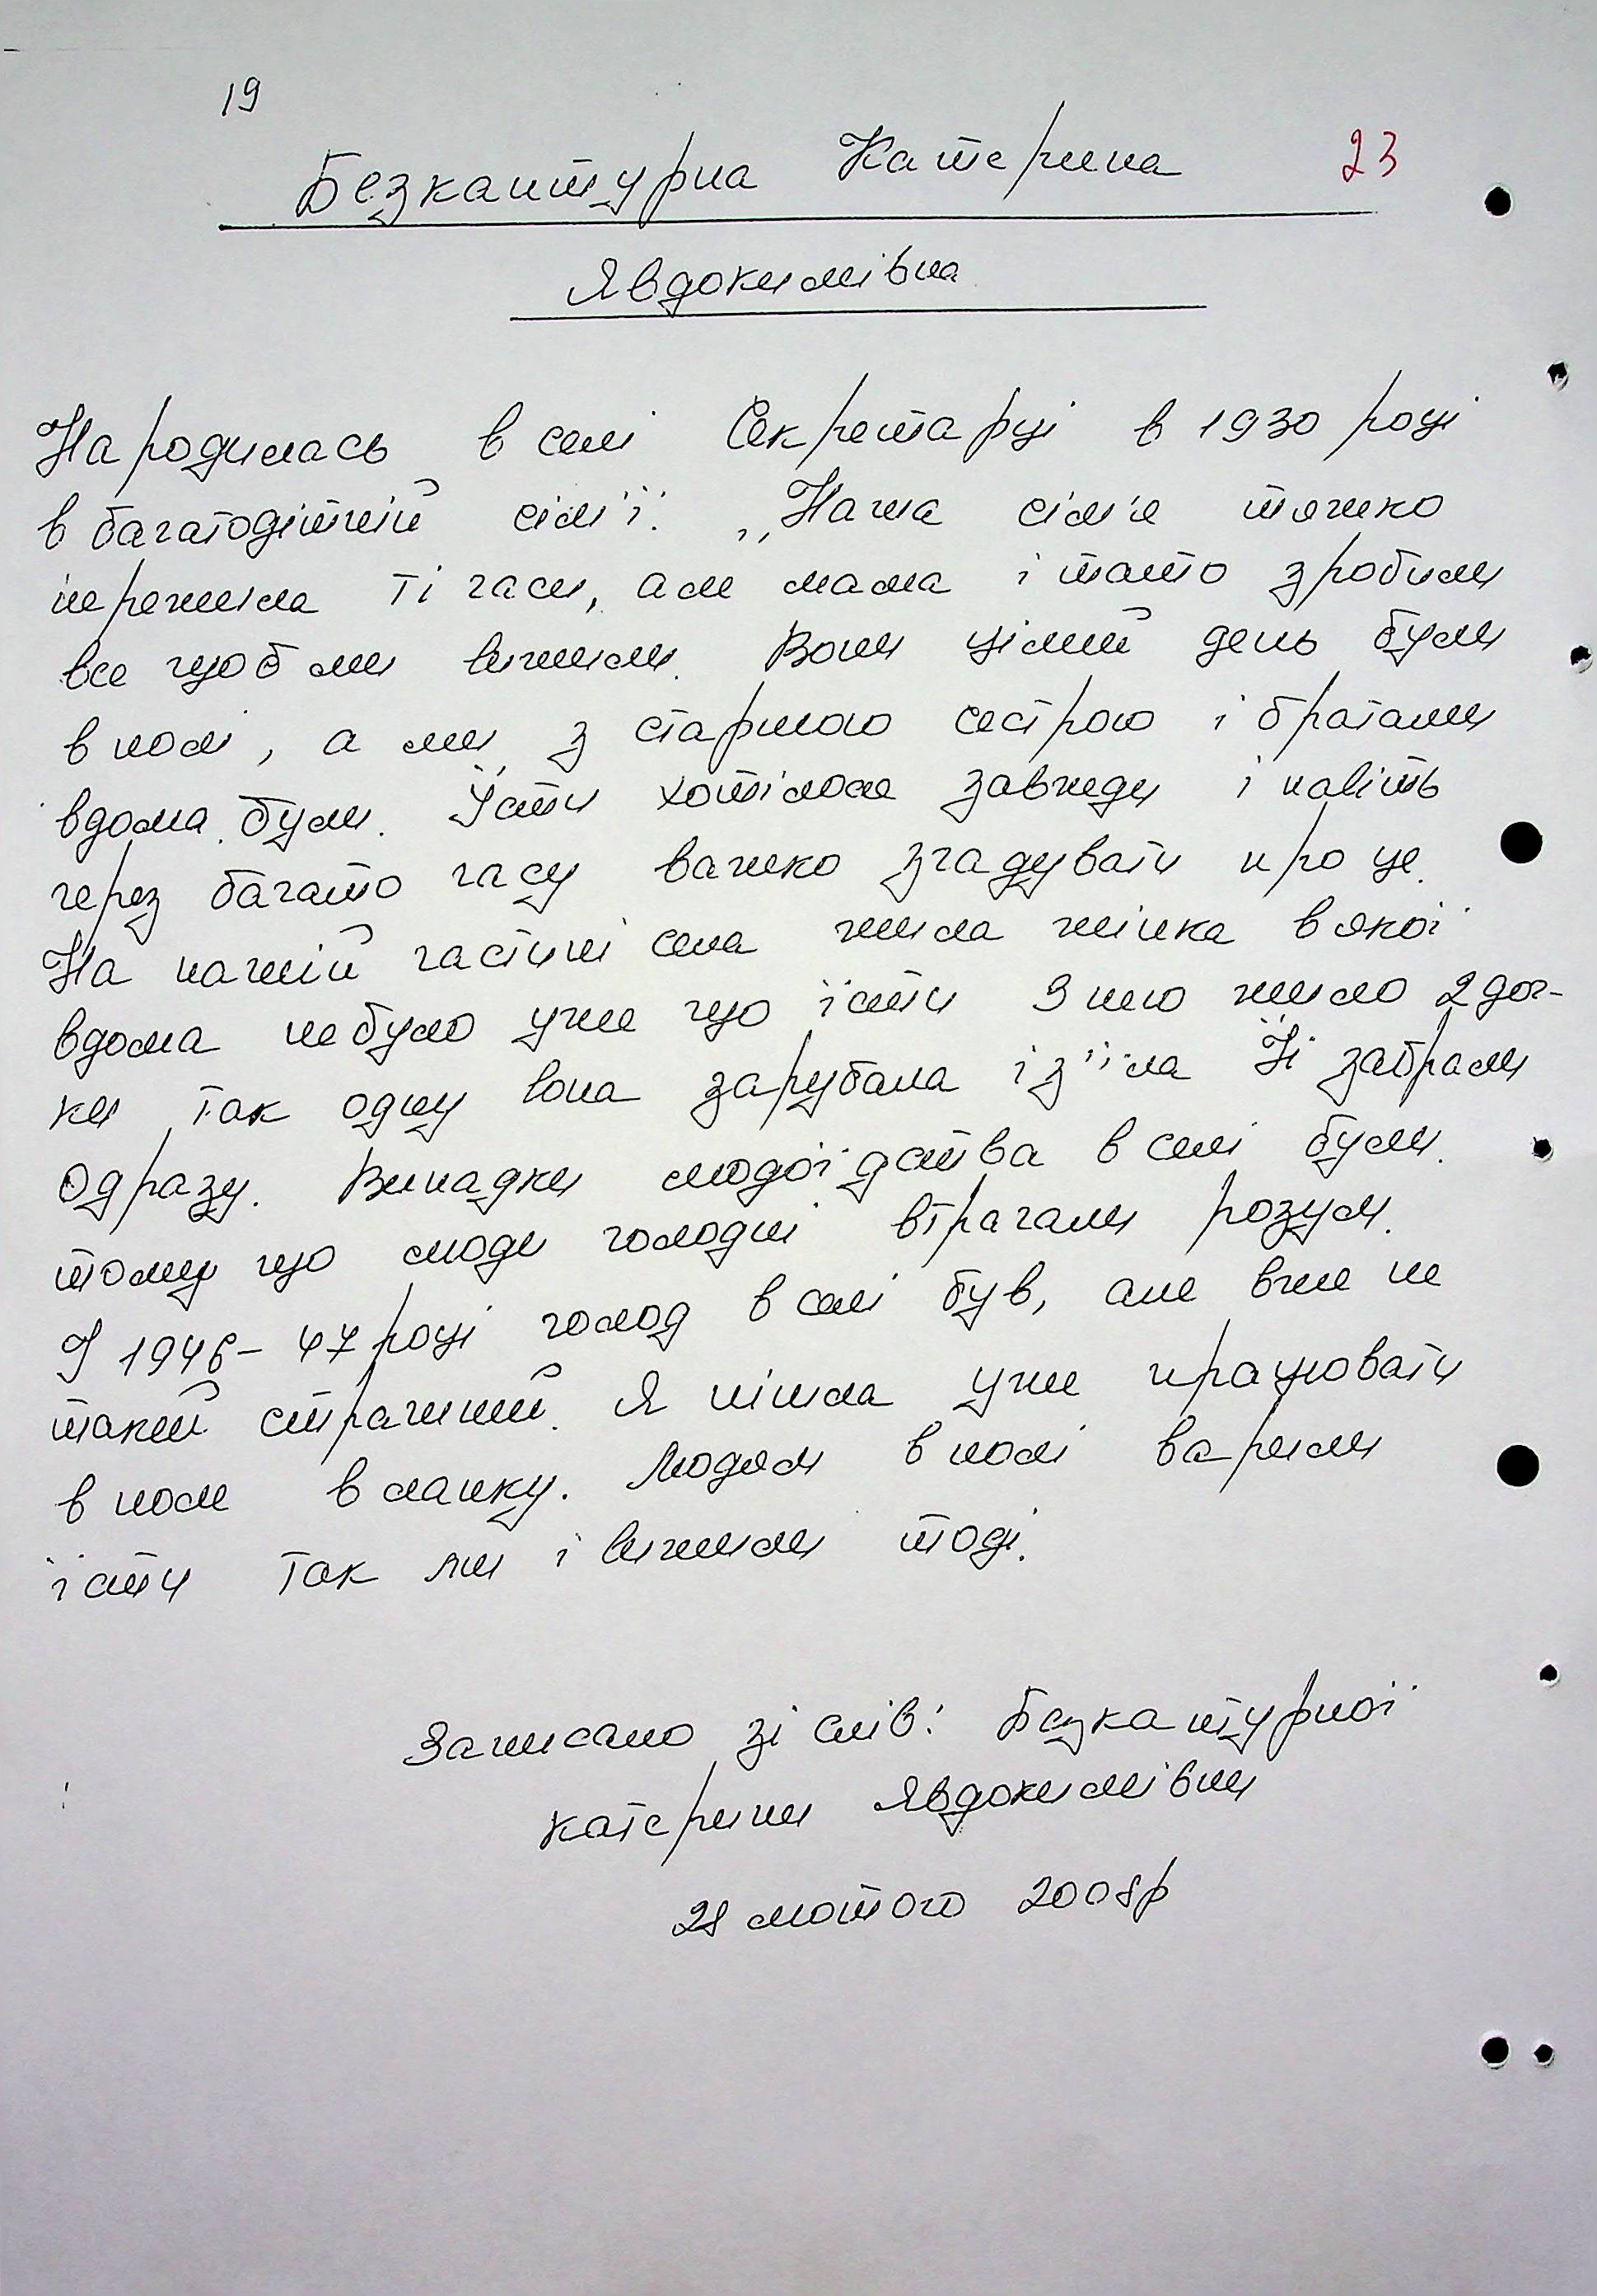 19
Безкаптурна Катерина 23
Явдокимівна
Народилась в селі Секретарці в 1930 році
в багатодітній сім'ї. ,,Наша сім'я тяжко
пережила ті часи, але мама і тато зробили
все щоб ми вижили. Вони цілий день були
в полі, а ми з старшою сестрою і братами
вдома були. Їсти хотілося завжди і навіть
через багато часу важко згадувати про це.
На нашій частині села жила жінка в якої
вдома не було уже що їсти З нею жило 2 доч-
ки так одну вона зарубала і з'їла Її забрали
одразу. Випадки людоїдства в селі були.
тому що люди голодні втрачали розум.
У 1946-47 році голод в селі був, але вже не
такий страшний. Я пішла уже працювати
в поле в ланку. Людям в полі варили
їсти так ми і вижили тоді.
Записано зі слів: Безкаптурної
Катерини Явдокимівни
28 лютого 2008р